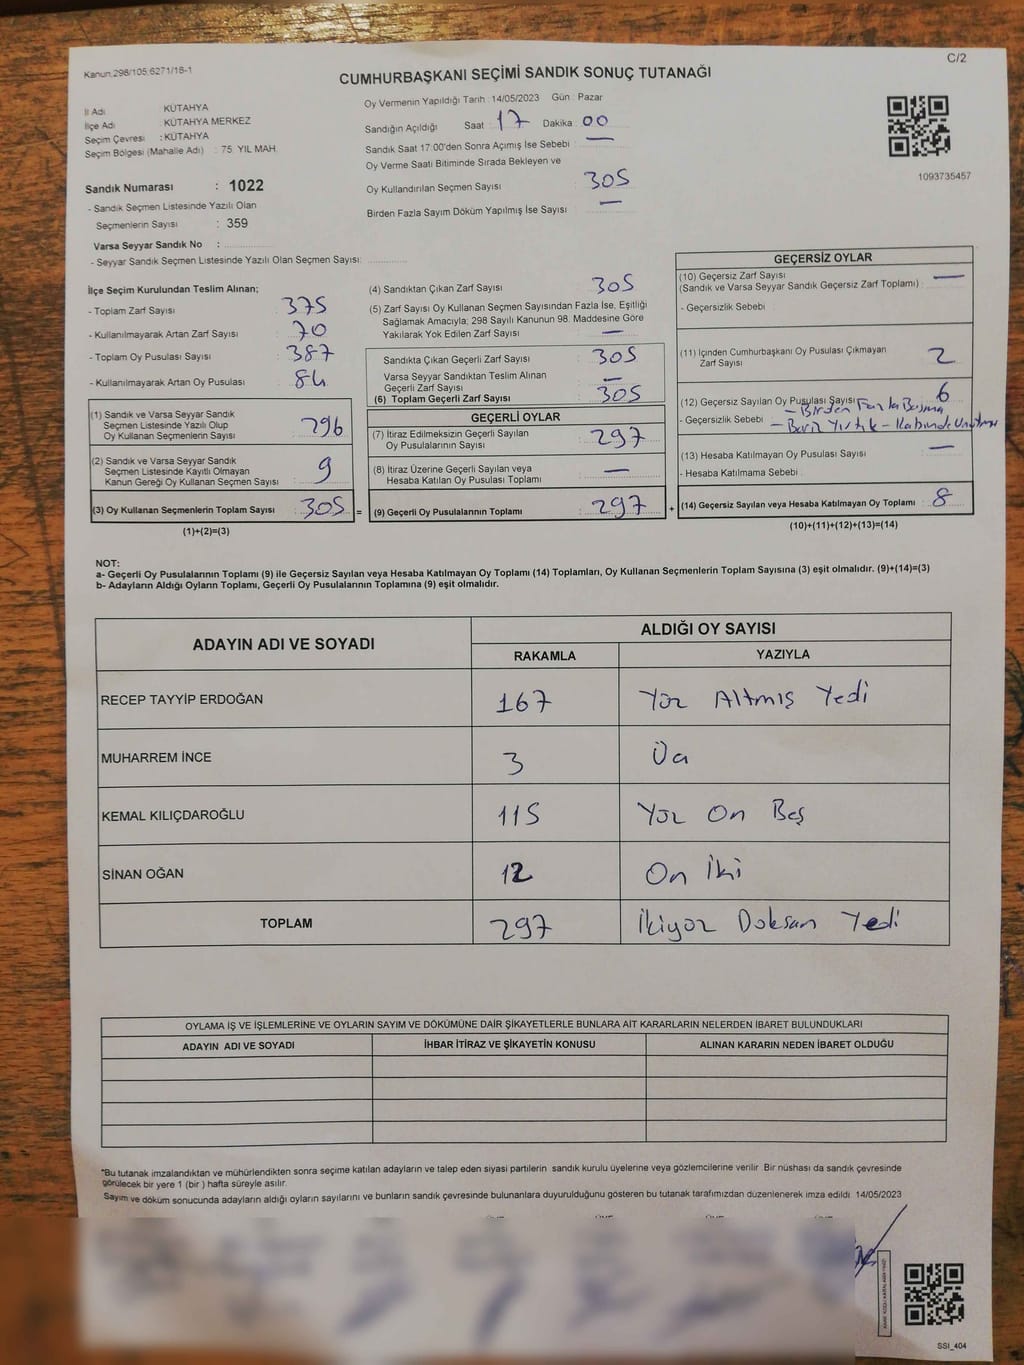 Kanun:298/105;6271/18-1
C/2
CUMHURBAŞKANI SEÇİMİ SANDIK SONUÇ TUTANAĞI
İl Adı KÜTAHYA
İlçe Adı : KÜTAHYA MERKEZ
Seçim Çevresi : KÜTAHYA
Seçim Bölgesi (Mahalle Adı) : 75. YIL MAH.
Sandık Numarası : 1022
- Sandık Seçmen Listesinde Yazılı Olan
Seçmenlerin Sayısı : 359
Varsa Seyyar Sandık No :
- Seyyar Sandık Seçmen Listesinde Yazılı Olan Seçmen Sayısı:
Oy Vermenin Yapıldığı Tarih : 14/05/2023 Gün : Pazar
Sandığın Açıldığı Saat : 17 Dakika : 00
Sandık Saat 17:00'den Sonra Açılmış İse Sebebi : —
Oy Verme Saati Bitiminde Sırada Bekleyen ve
Oy Kullandırılan Seçmen Sayısı 305
Birden Fazla Sayım Döküm Yapılmış İse Sayısı —
1093735457
İlçe Seçim Kurulundan Teslim Alınan;
- Toplam Zarf Sayısı : 375
- Kullanılmayarak Artan Zarf Sayısı : 70
- Toplam Oy Pusulası Sayısı : 387
- Kullanılmayarak Artan Oy Pusulası : 84
(1) Sandık ve Varsa Seyyar Sandık
Seçmen Listesinde Yazılı Olup
Oy Kullanan Seçmenlerin Sayısı : 296
(2) Sandık ve Varsa Seyyar Sandık
Seçmen Listesinde Kayıtlı Olmayan
Kanun Gereği Oy Kullanan Seçmen Sayısı : 9
(3) Oy Kullanan Seçmenlerin Toplam Sayısı : 305 =
(1)+(2)=(3)
(4) Sandıktan Çıkan Zarf Sayısı : 305
(5) Zarf Sayısı Oy Kullanan Seçmen Sayısından Fazla İse, Eşitliği
Sağlamak Amacıyla; 298 Sayılı Kanunun 98. Maddesine Göre
Yakılarak Yok Edilen Zarf Sayısı : —
Sandıkta Çıkan Geçerli Zarf Sayısı : 305
Varsa Seyyar Sandıktan Teslim Alınan
Geçerli Zarf Sayısı : —
(6) Toplam Geçerli Zarf Sayısı : 305
GEÇERLİ OYLAR
(7) İtiraz Edilmeksizin Geçerli Sayılan
Oy Pusulalarının Sayısı : 297
(8) İtiraz Üzerine Geçerli Sayılan veya
Hesaba Katılan Oy Pusulası Toplamı : —
(9) Geçerli Oy Pusulalarının Toplamı : 297 +
GEÇERSİZ OYLAR
(10) Geçersiz Zarf Sayısı
(Sandık ve Varsa Seyyar Sandık Geçersiz Zarf Toplamı) : —
- Geçersizlik Sebebi :
(11) İçinden Cumhurbaşkanı Oy Pusulası Çıkmayan
Zarf Sayısı : 2
(12) Geçersiz Sayılan Oy Pusulası Sayısı : 6
- Geçersizlik Sebebi : - Birden Fazla Basma
- Yırtık - Kabinde
(13) Hesaba Katılmayan Oy Pusulası Sayısı : —
- Hesaba Katılmama Sebebi :
(14) Geçersiz Sayılan veya Hesaba Katılmayan Oy Toplamı : 8
(10)+(11)+(12)+(13)=(14)
NOT:
a- Geçerli Oy Pusulalarının Toplamı (9) ile Geçersiz Sayılan veya Hesaba Katılmayan Oy Toplamı (14) Toplamları, Oy Kullanan Seçmenlerin Toplam Sayısına (3) eşit olmalıdır. (9)+(14)=(3)
b- Adayların Aldığı Oyların Toplamı, Geçerli Oy Pusulalarının Toplamına (9) eşit olmalıdır.
ADAYIN ADI VE SOYADI ALDIĞI OY SAYISI
RAKAMLA YAZIYLA
RECEP TAYYİP ERDOĞAN 167 Yüz Altmış Yedi
MUHARREM İNCE 3 Üç
KEMAL KILIÇDAROĞLU 115 Yüz On Beş
SİNAN OĞAN 12 On İki
TOPLAM 297 İkiyüz Doksan Yedi
OYLAMA İŞ VE İŞLEMLERİNE VE OYLARIN SAYIM VE DÖKÜMÜNE DAİR ŞİKAYETLERLE BUNLARA AİT KARARLARIN NELERDEN İBARET BULUNDUKLARI
ADAYIN ADI VE SOYADI İHBAR İTİRAZ VE ŞİKAYETİN KONUSU ALINAN KARARIN NEDEN İBARET OLDUĞU
*Bu tutanak imzalandıktan ve mühürlendikten sonra seçime katılan adayların ve talep eden siyasi partilerin sandık kurulu üyelerine veya gözlemcilerine verilir. Bir nüshası da sandık çevresinde
görülecek bir yere 1 (bir) hafta süreyle asılır.
Sayım ve döküm sonucunda adayların aldığı oyların sayılarını ve bunların sandık çevresinde bulunanlara duyurulduğunu gösteren bu tutanak tarafımızdan düzenlenerek imza edildi. 14/05/2023
SSI_404